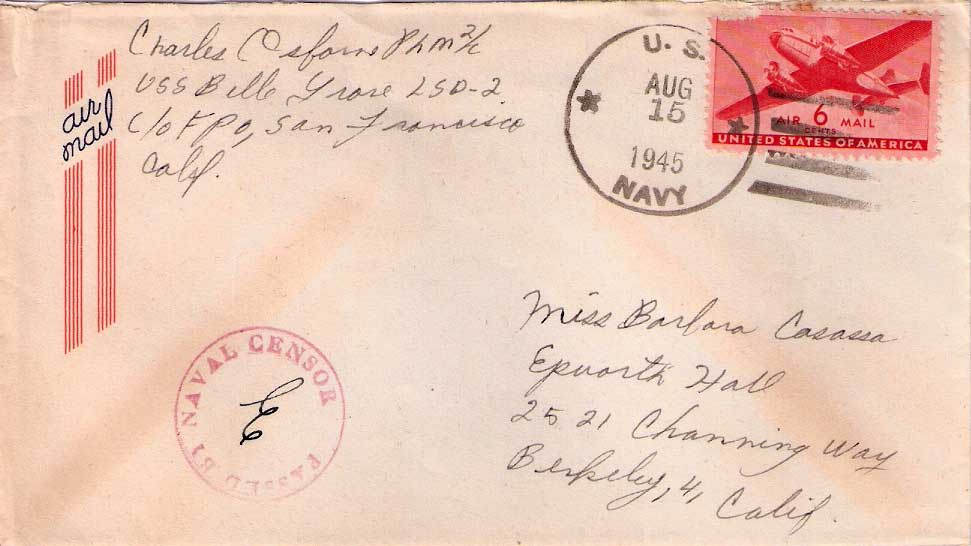 Charles Osborne PhM 2/c
USS Belle Grove LSD-2
c/o FPO, San Francisco
Calif.
air
mail
U. S.
AUG
15
1945
NAVY
AIR 6 MAIL
CENTS
UNITED STATES OF AMERICA
Miss Barbara Casassa
Epworth Hall
2521 Channing Way
Berkeley, 4, Calif.
PASSED BY NAVAL CENSOR